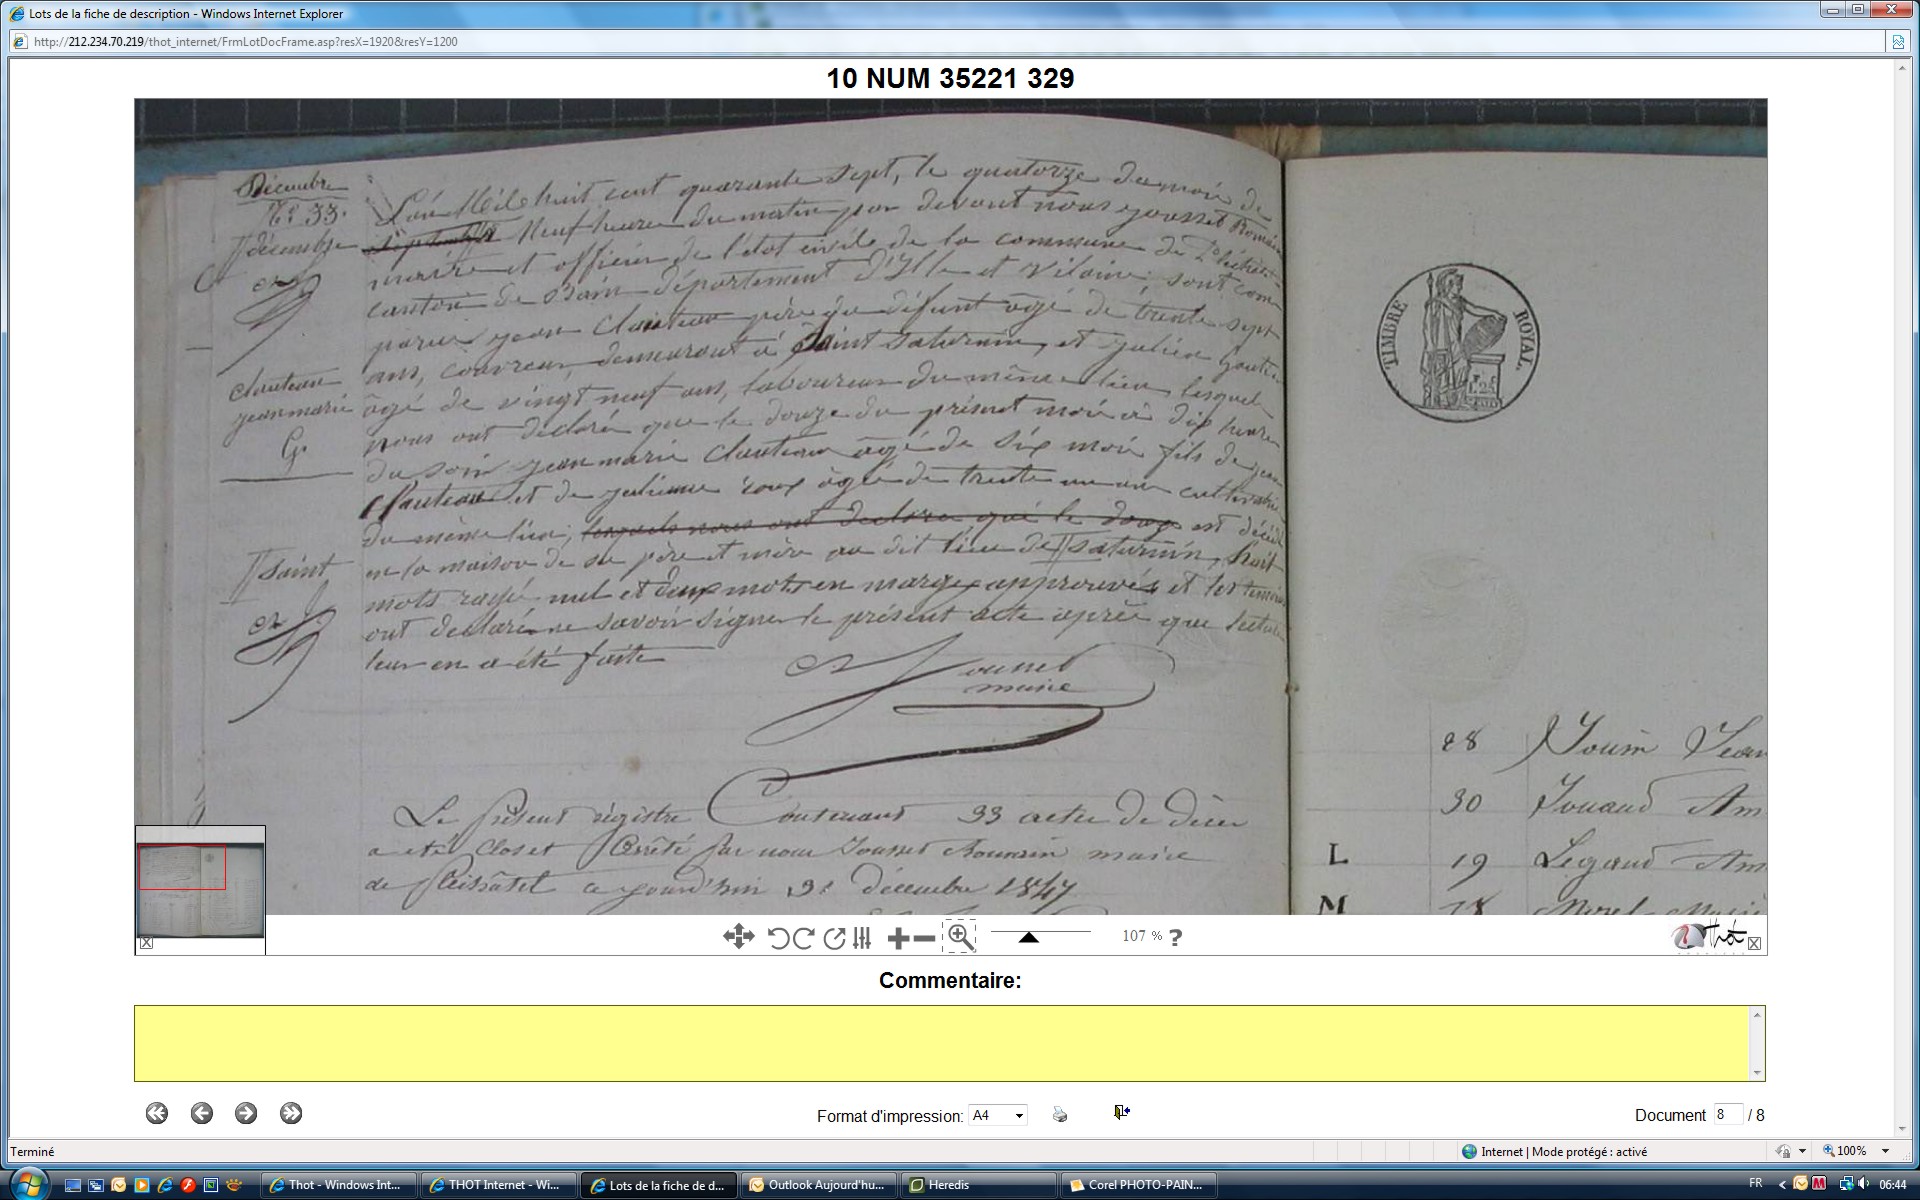 Lots de la fiche de description - Windows Internet Explorer
http://212.234.70.219/thot_internet/FrmLotDocFrame.asp?resX=1920&resY=1200
10 NUM 35221 329
Décembre
N° 33.
décembre
clauteau
jean marie
G
saint
L'an Mil huit cent quarante sept, le quatorze du mois de
septembre Neuf heures du matin par devant nous Jousset Romain
maire et officier de l'état civile de la commune de
canton de Bain département d'Ille et Vilaine; sont com
parus jean clauteau père du défunt agé de trente sept
ans, couvreur, demeurant à Saint Saturnin, et julien Gautier
âgé de vingt neuf ans, laboureur du même lieu lesquels
nous ont déclaré que le douze du présent mois à dix heures
du soir jean marie Clauteau âgé de six mois fils de jean
Clauteau et de julienne roux âgée de trente un ans
du même lieu, lesquels nous ont déclaré que le douze est décédé
en la maison de se père et mère au dit lieu de saturnin, huit
mots rayé nul et deux mots en marge approuvés et les témoins
ont déclaré ne savoir signer le présent acte après que lecture
leur en a été faite
Jousset
maire
Le Présent régistre Contenant 33 actes de décès
a été clos et Arrêté par nous Jousset Romain maire
de Pléchâtel ce jourd'hui 31 décembre 1847
TIMBRE ROYAL
28 Jouin Jean
30 Jouaud Am
L 19 Legaud Am
M 18 Morel Marie
107 % ?
Thot
Commentaire:
Format d'impression: A4
Document 8 / 8
Terminé
Internet | Mode protégé : activé
100%
Thot - Windows Int...
THOT Internet - Wi...
Lots de la fiche de d...
Outlook Aujourd'hu...
Heredis
Corel PHOTO-PAIN...
FR
06:44